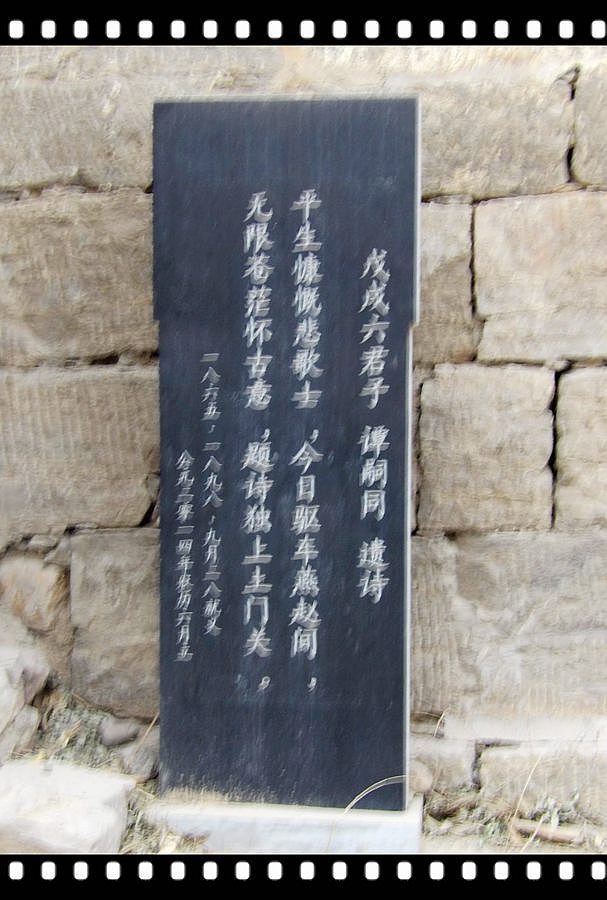 戊戌六君子 谭嗣同 遗诗
平生慷慨悲歌士，今日驱车燕赵间，
无限苍茫怀古意，题诗独上土门关。
一八六五，一八九八，九月二八就义
公元二零一四年农历六月立